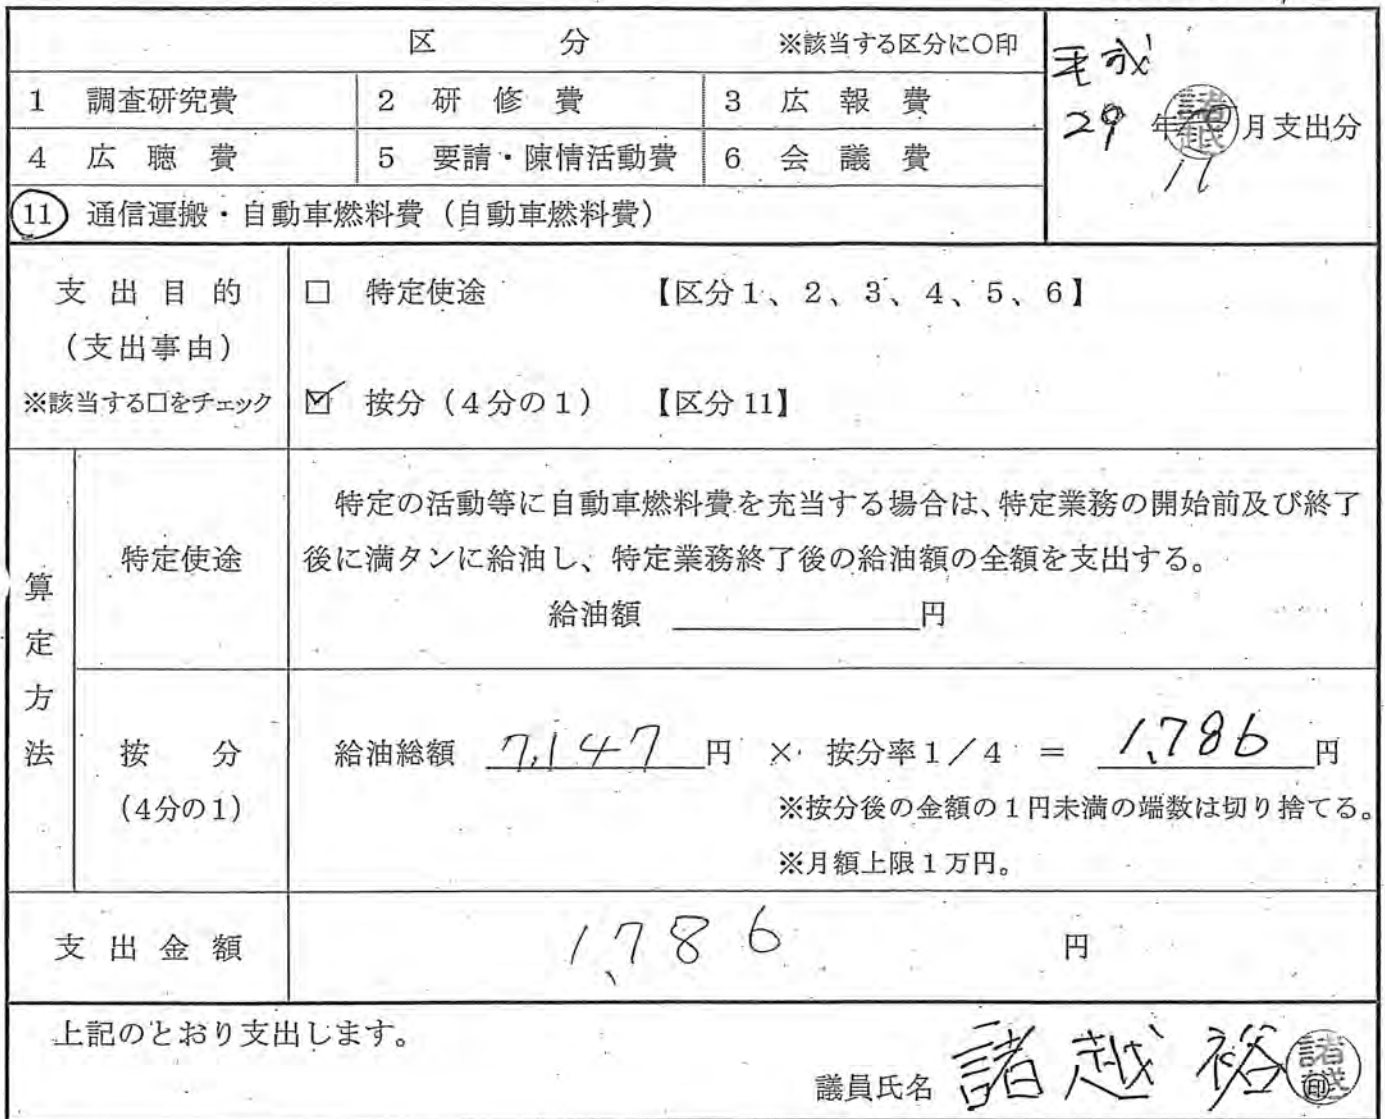 区 分 ※該当する区分に○印
平成
29 年 月支出分
11
1 調査研究費 2 研修費 3 広報費
4 広聴費 5 要請・陳情活動費 6 会議費
11 通信運搬・自動車燃料費（自動車燃料費）
支出目的
（支出事由）
※該当する□をチェック
□ 特定使途 【区分1、2、3、4、5、6】
☑ 按分（4分の1） 【区分11】
算定方法
特定使途
特定の活動等に自動車燃料費を充当する場合は、特定業務の開始前及び終了
後に満タンに給油し、特定業務終了後の給油額の全額を支出する。
給油額 円
按分
（4分の1）
給油総額 7,147 円 × 按分率1／4 = 1,786 円
※按分後の金額の1円未満の端数は切り捨てる。
※月額上限1万円。
支出金額 1,786 円
上記のとおり支出します。
議員氏名 諸越 裕 諸越 印